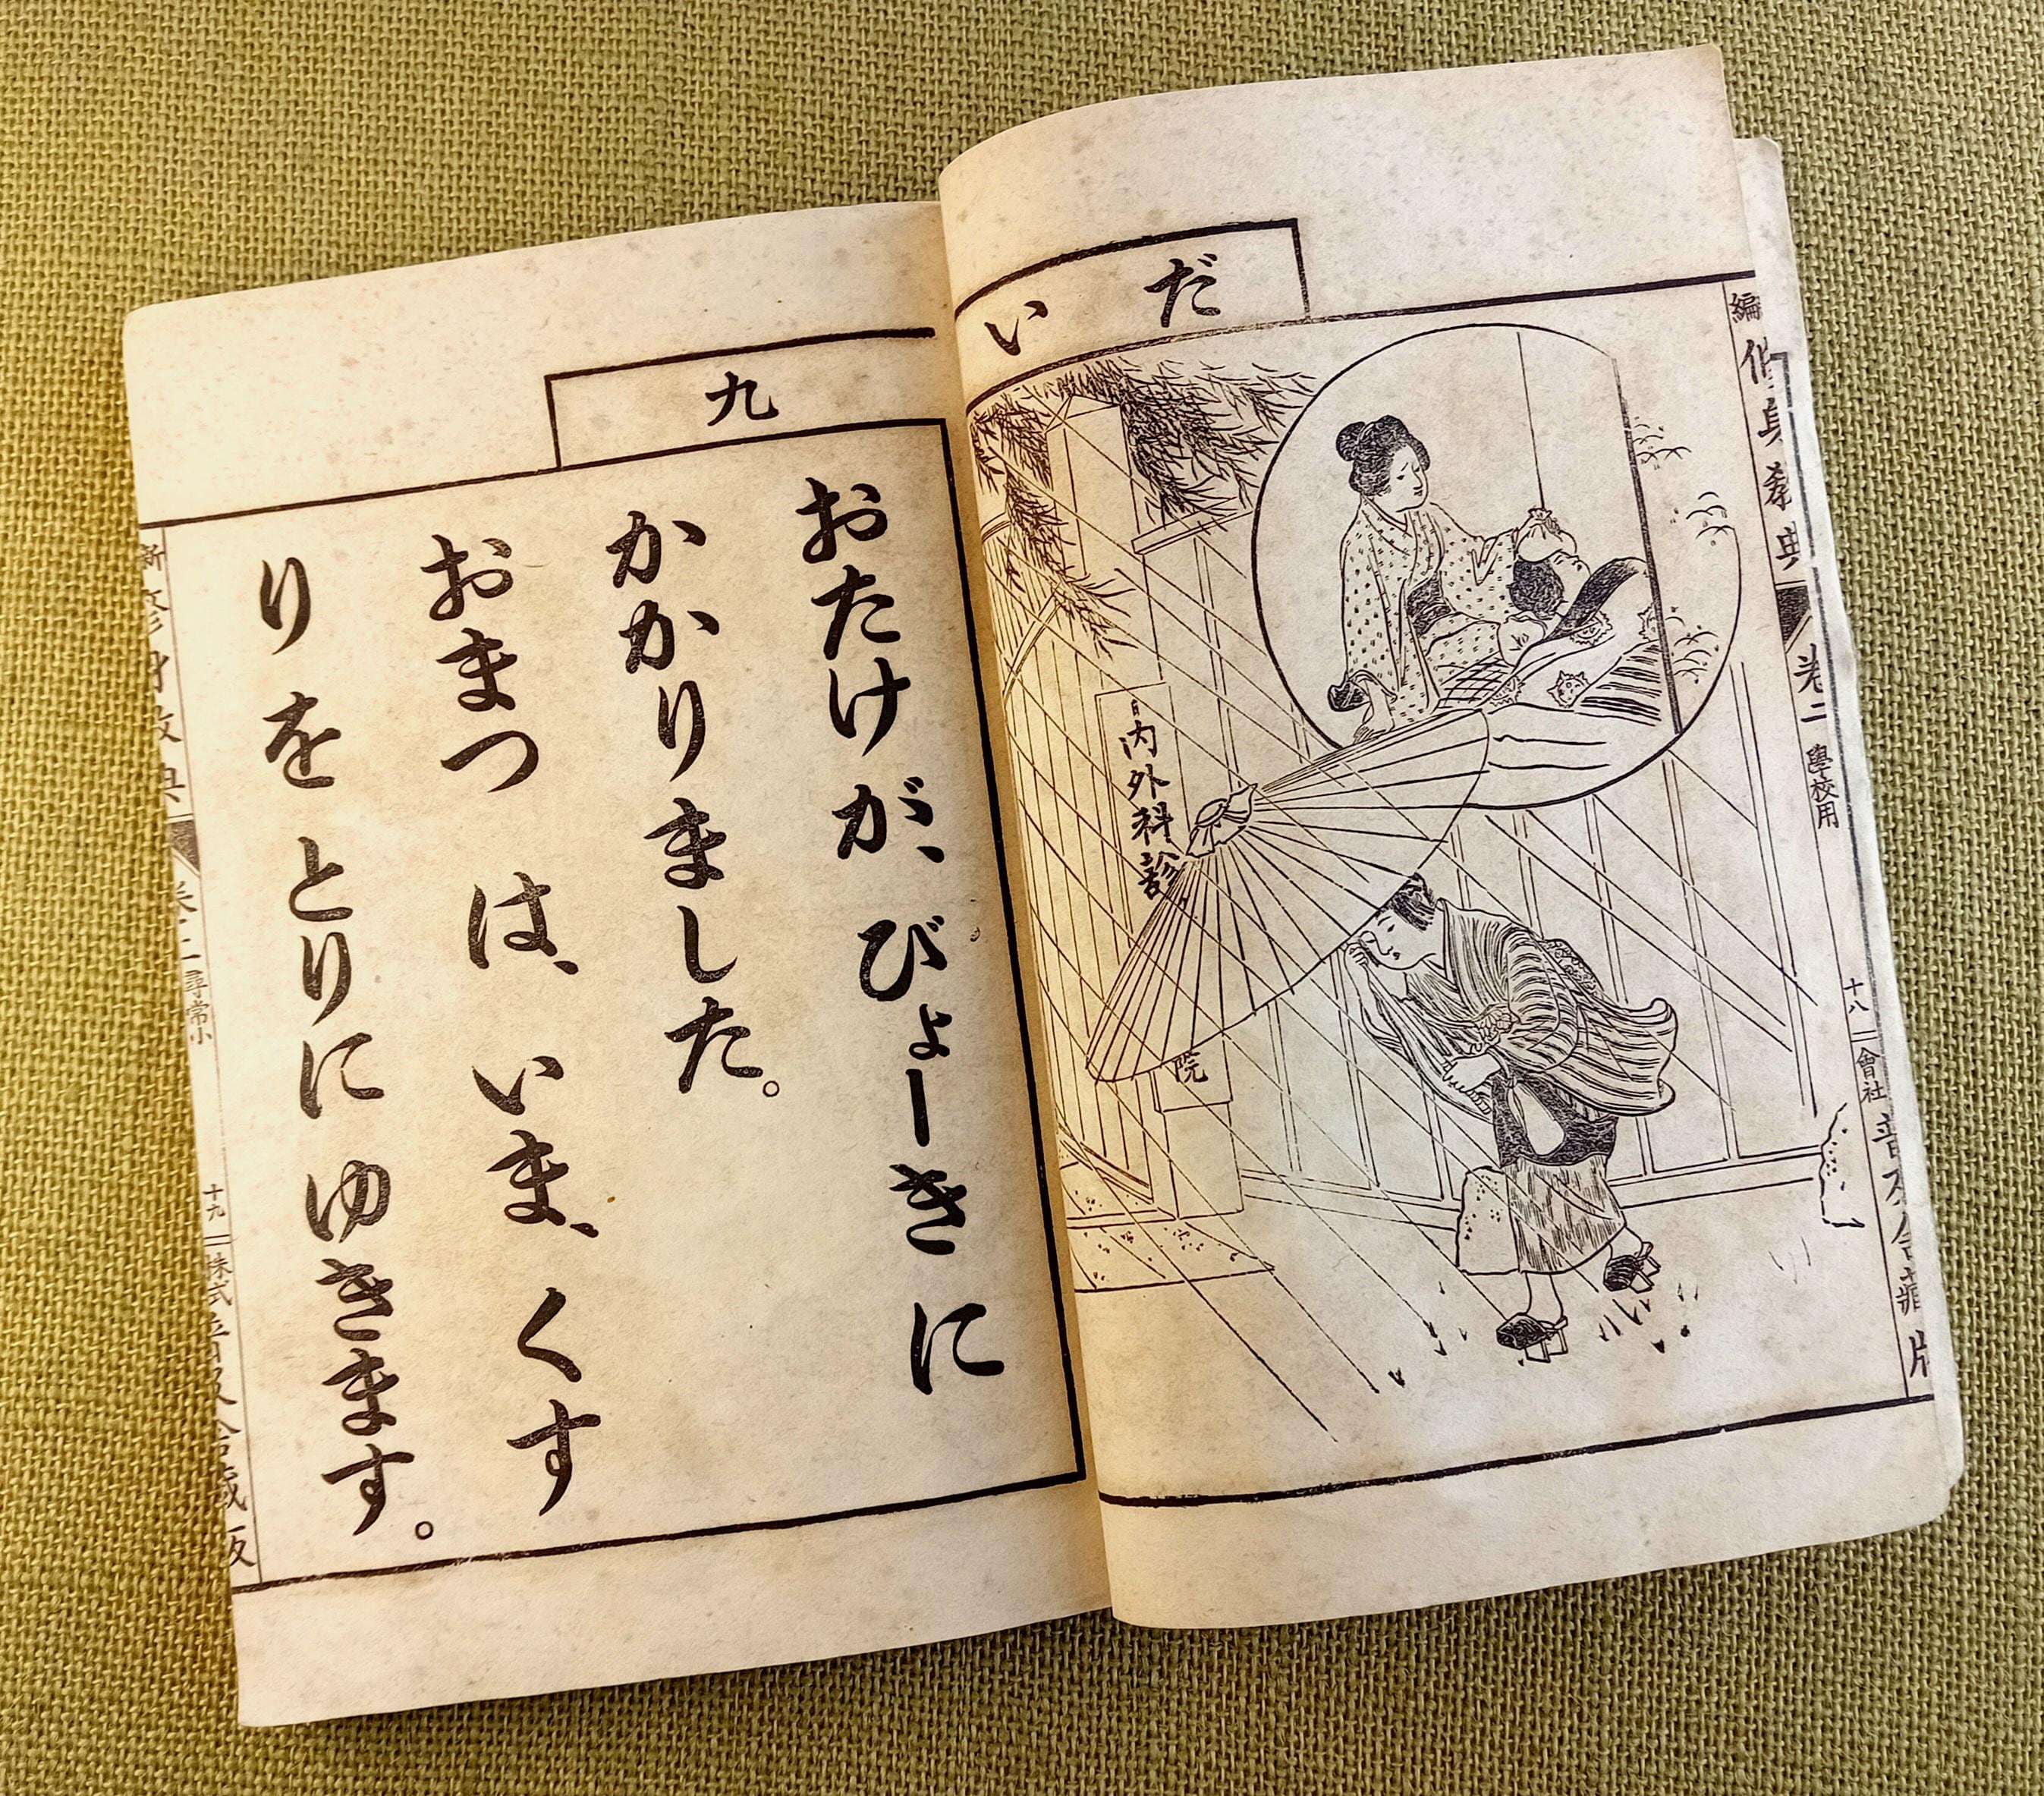 だい
編修身教典
卷二
學校用
十八
會社
普及舍藏版
内外科診
院
九
おたけが、びょーきに
かかりました。
おまつは、いま、くす
りをとりにゆきます。
卷二
尋常小
十九
株式